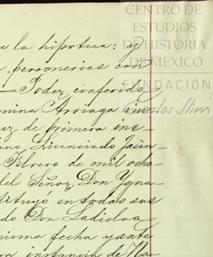 CENTRO DE
ESTUDIOS
DE HISTORIA
DE MEXICO
FUNDACIÓN
Carlos Slim
de la hipoteca; y
personerias con
— Poder conferido
mina Arriaga viu—
ez de primera ins—
ano, Licenciado Juan
Febrero de mil ocho
del Señor Don Ygna—
tituyó en todas sus
do Don Ladislao
sima fecha y ante
ra instancia de Ma—